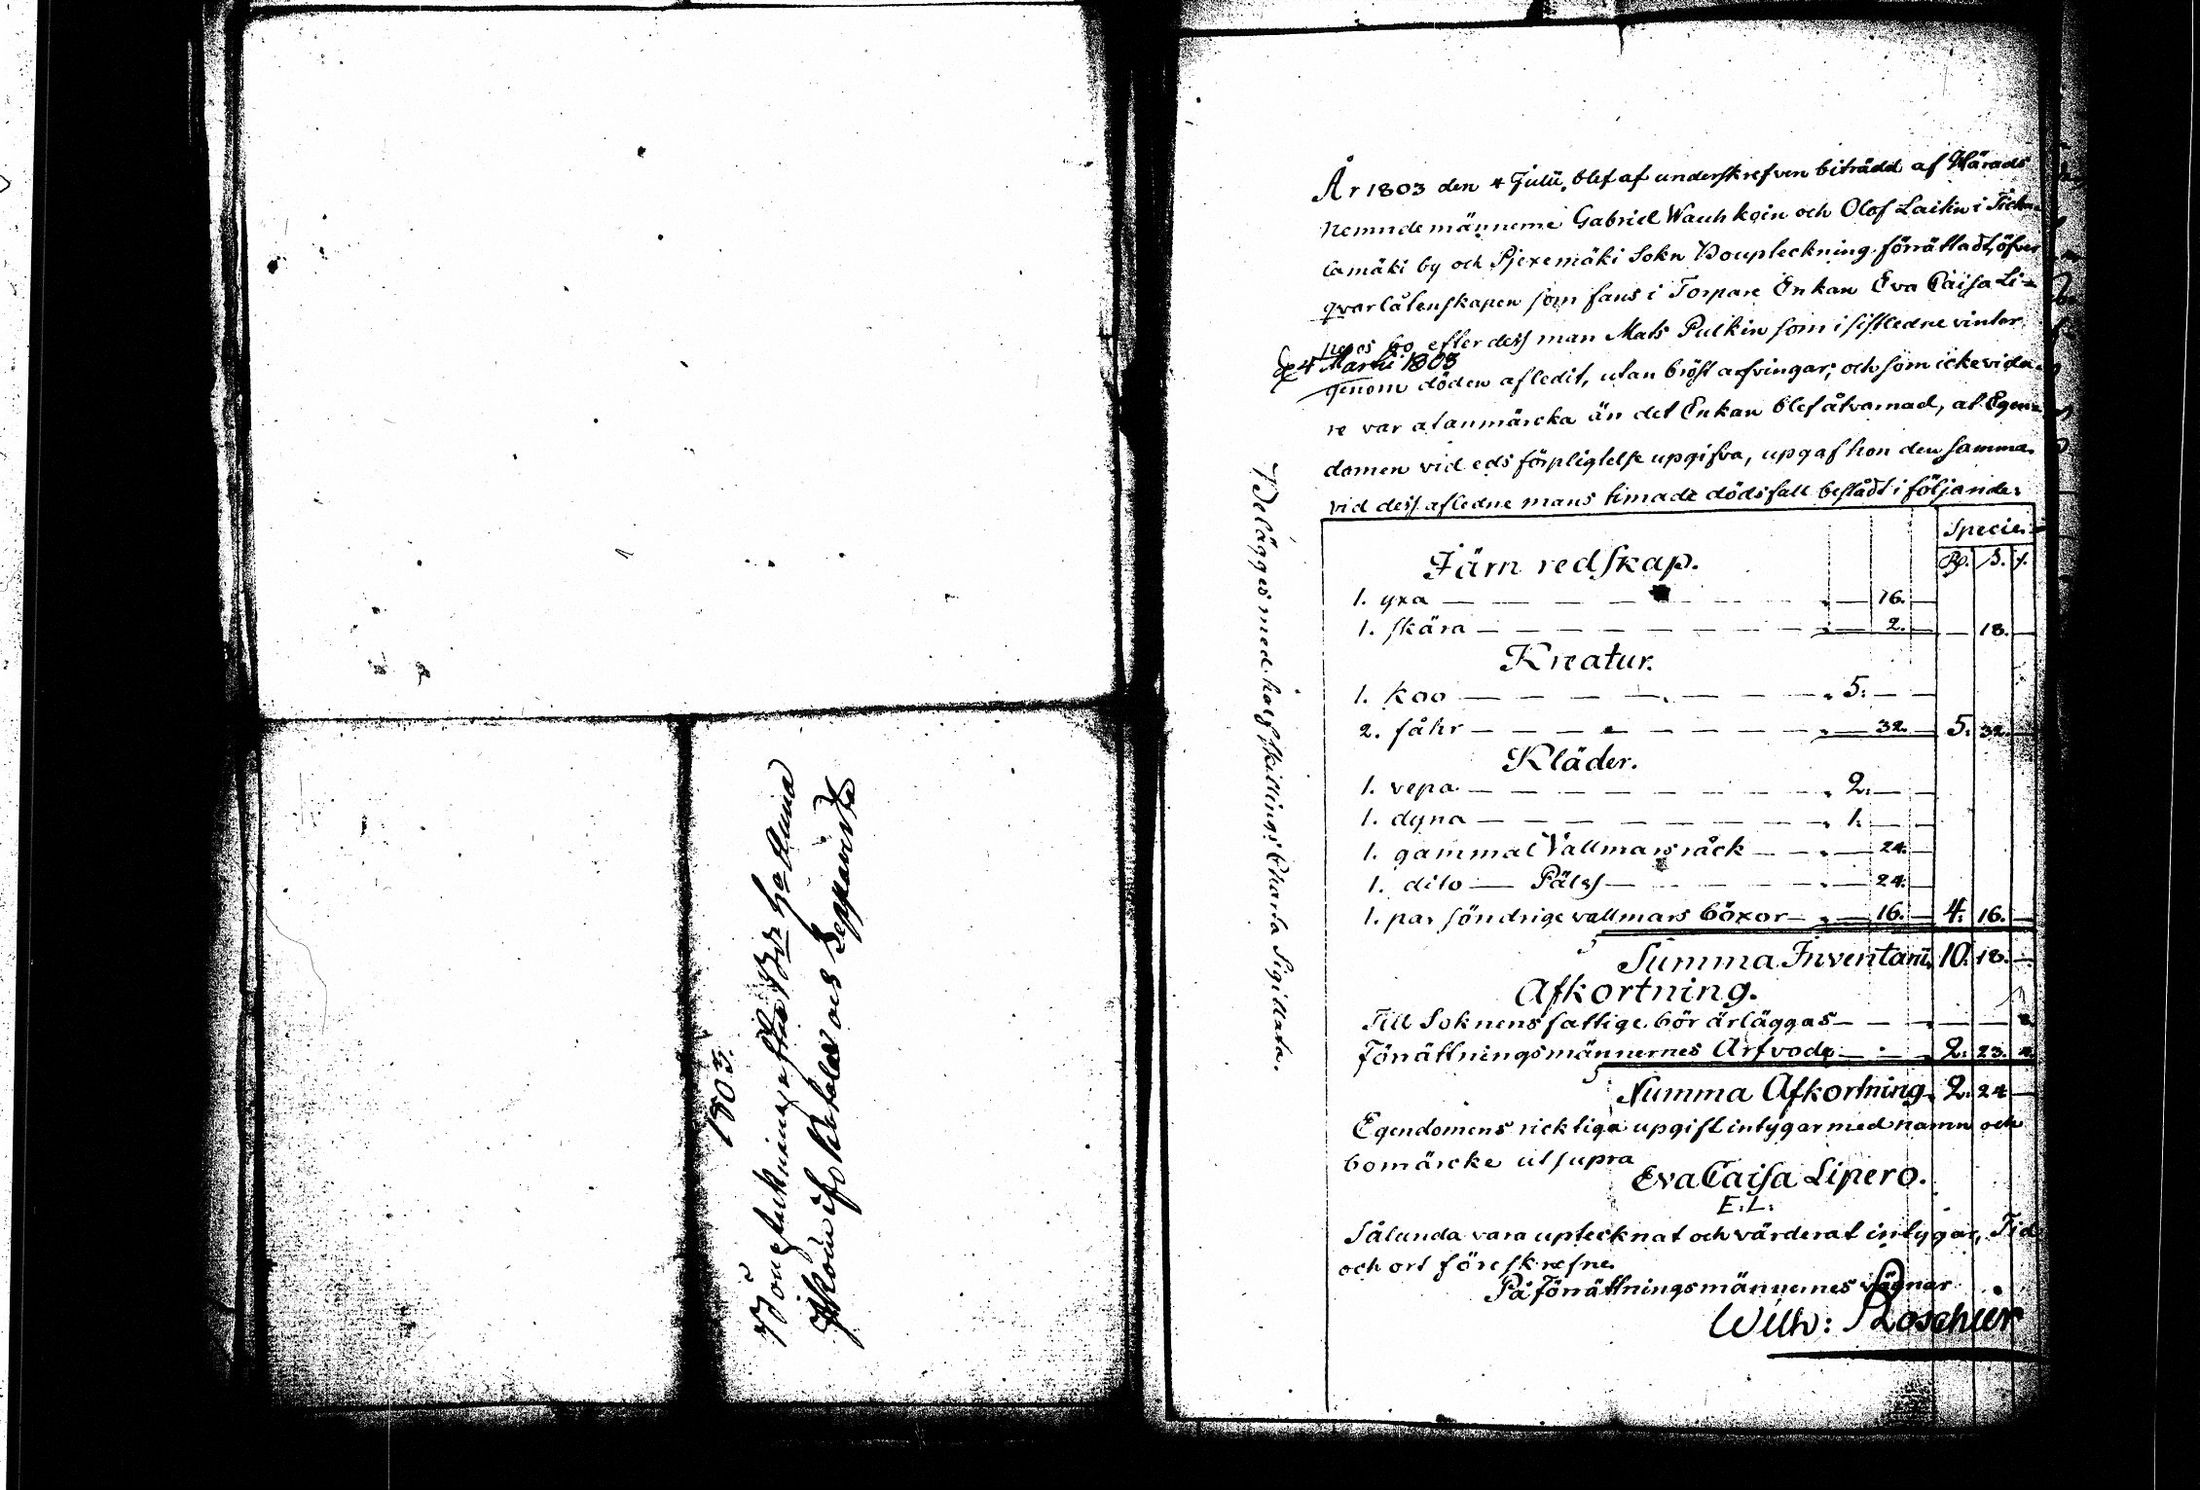 1803.
År 1803 den 4 Julii, blef af underskrefven biträdd af Härads
Nemndemännerne Gabriel Wauhkoin och Olof Laitin i
lamäki by och Pjexemäki Sokn Bouptekning förrättadt, öfver
qvarlåtenskapen som fans i Torpare Enkan Eva Caisa Li-
peros bo efter dess man Mats Pulkin som i sistledne vinter
d 4 Martii 1803
genom döden afledit, utan bröst arfvingar; och som icke vida-
re var at anmärcka än det Enkan blef åtvarnad, at Egen-
domen vid eds förpligtelse upgifva, upgaf hon den samma
vid dess afledne mans timade dödsfall bestådt i följande:
Specie.
Rd. S. r.
Järn redskap.
1. yxa — — — — — 16. —
1. skära — — — — — 2. — — 18. —
Kreatur.
1. koo — — — — — 5. — —
2. fåhr — — — — — 32. — 5. 32. —
Kläder.
1. vepa — — — — — 2. — —
1. dyna — — — — — 1. — —
1. gammal Vallmarsråck — — 24. —
1. dito — Pälss — — — 24. —
1. par söndrige vallmars böxor — — 16. — 4. 16. —
Summa Inventarii, 10. 18. —
Afkortning.
Till Soknens fattige bör ärläggas — — — — — 8.
Förrättningsmännernes Arfvode — — 2. 23. 4.
Summa Afkortning. 2. 24 —
Egendomens ricktiga upgift intygar med namn och
bomärcke ut supra
Eva Caisa Lipero.
E. L.
Sålunda vara uptecknat och värderat intygar, Tid
och ort föreskrefne.
På Förrättningsmännernes vägnar
Wilh: Roschier
Belägges med half skillings Charta Sigillata.